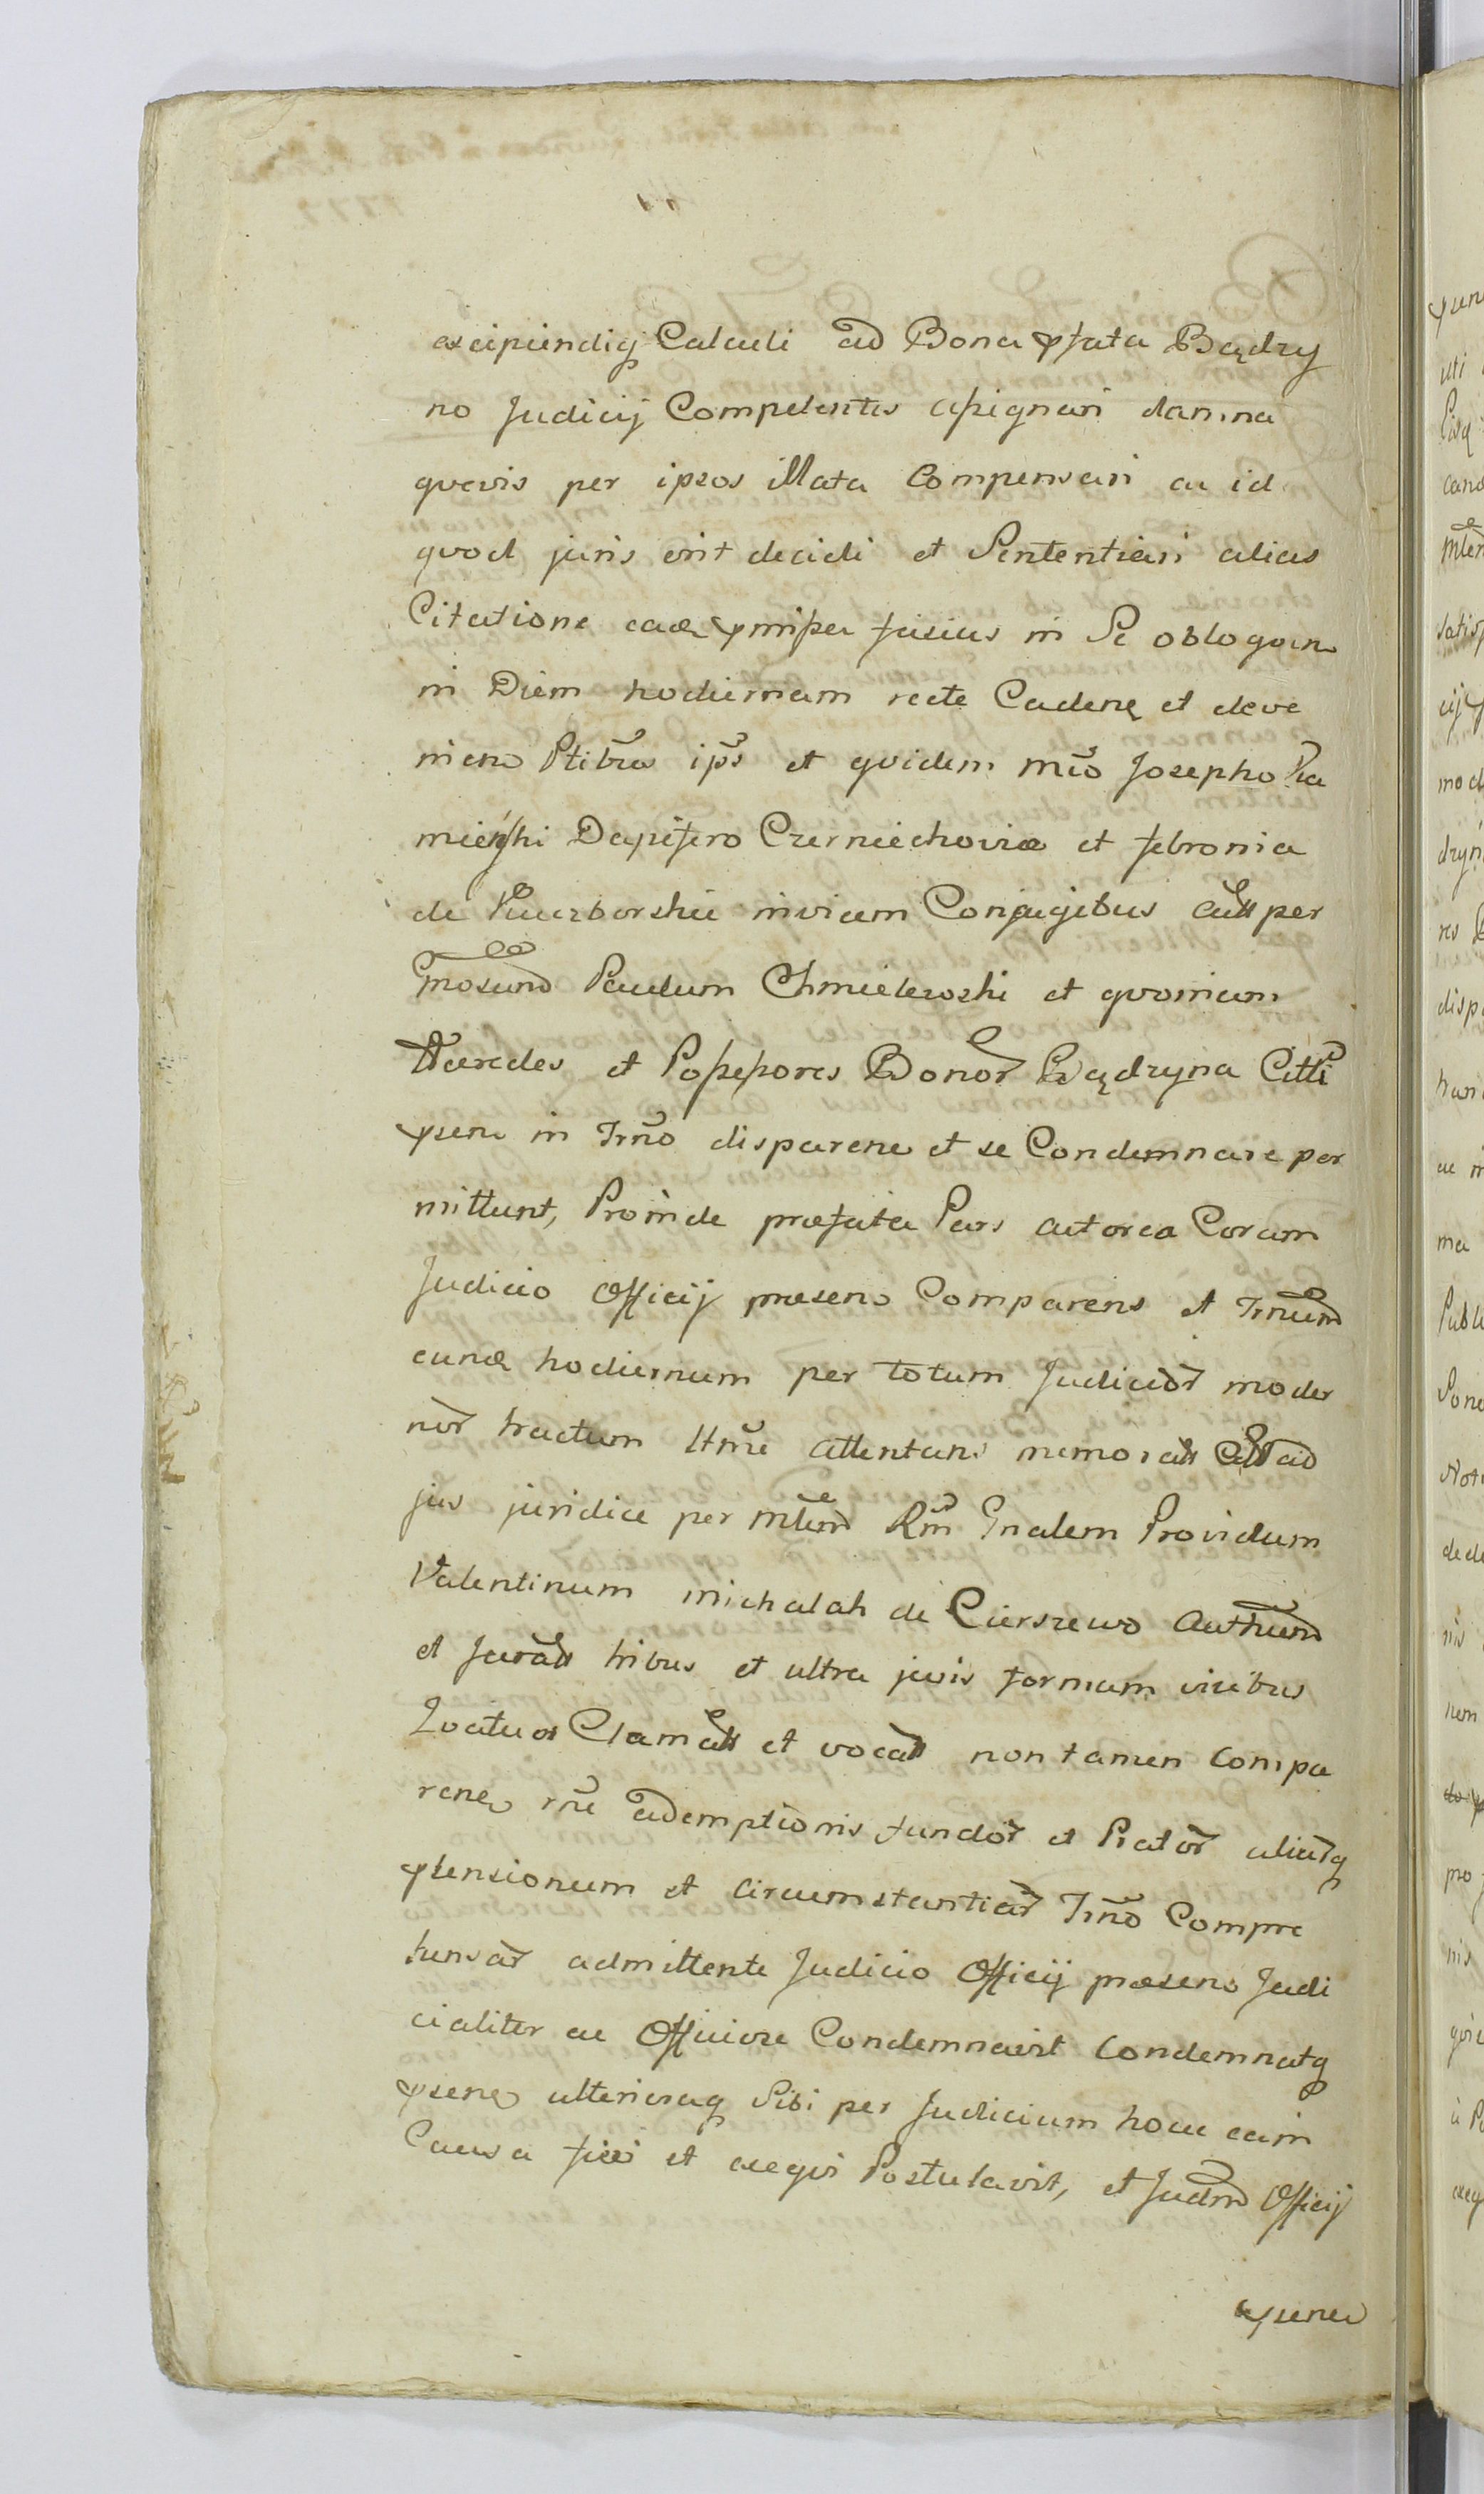 excipiendiq Calculi ad Bona pfata Bądzy
no Judicij Competentis assignari damna
quævis per ipsos illata Compensari ac id
quod juris erit decidi et Sententiari alias
Citatione eade pmissa fusius in Se obloquen
in Diem hodiernam recte Caden et deve
nien Ptibus ips et quidem Mco Josepho
mieński Dapifero Czerniechoviæ et febronia
de invicem Conjugibus
Gnosum Paulum Chmielewski et quoniam
Hæredes et Possessores Bonor Bądzyna Citti
psen in Trno disparen et se Condemnare per
mittunt, Proinde præfata Pars actorea Coram
Judicio Officij præsen Comparens et Trnum
eund hodiernum per totum Judicior moder
nor tractum ltme attentans memorat ad
jus juridice per Mlem Rni Gnalem Providum
Valentinum Michalak de Cierszewo Authum
et Jurat tribus et ultra juris formam vicibus
Clamat et vocat non tamen Compa
ren rne ademptionis fundor et Prator aliarq
ptensionum et Circumstantiar Trno Compre
hensar admittente Judicio Officij præsen Judi
cialiter ac Officiose Condemnavit Condemnatq
psen ulteriusq Sibi per Judicium hoc eain
Causa fieri et exequi Postulavit, et Judm Officij
psen